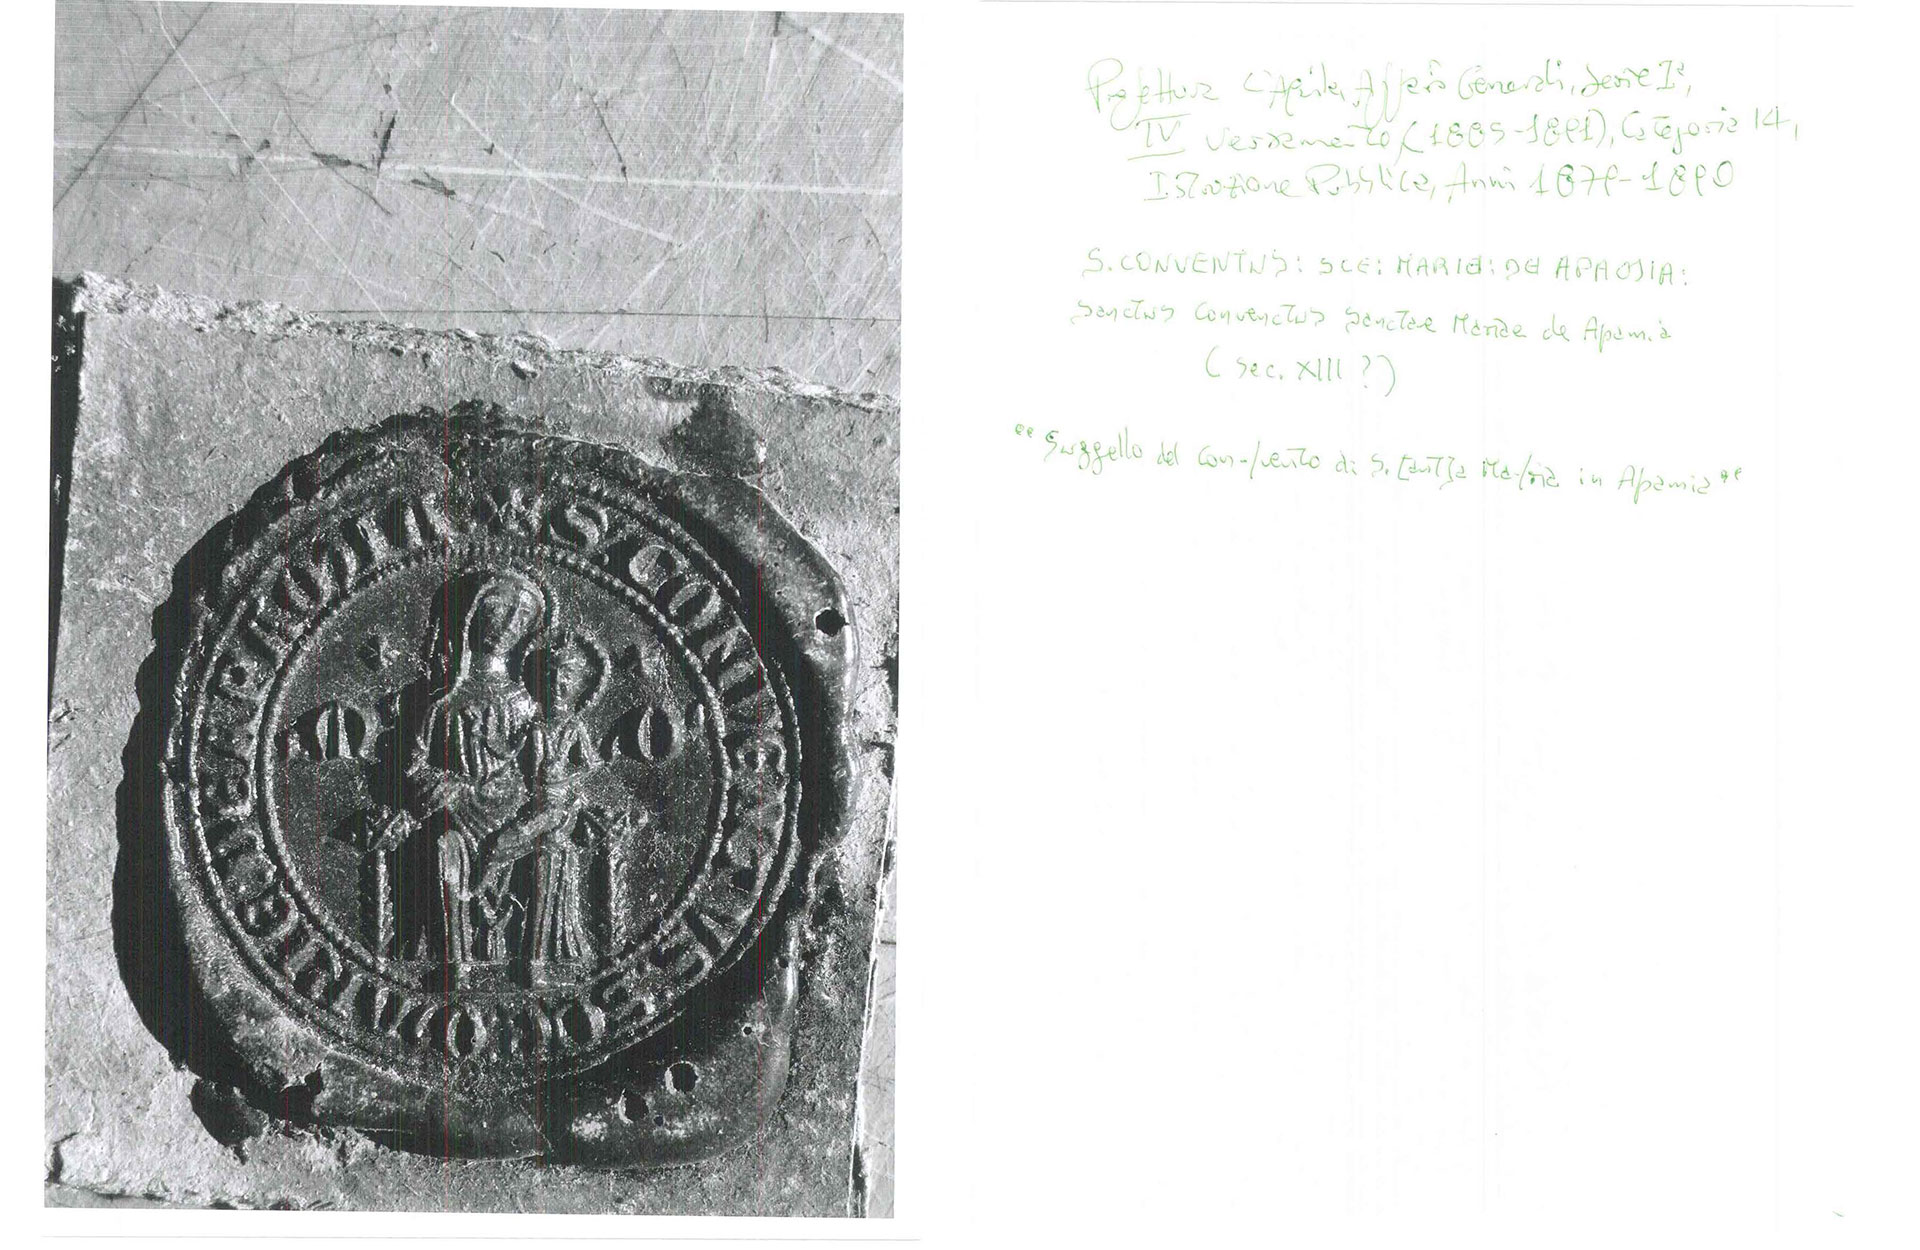 S CONVE
Prefettura L'Aquila, Affari Generali, Serie Iª,
IV versamento (1885-1891), Categoria 14,
Istruzione Pubblica, Anni 1879-1890
S. CONVENTUS: SCE: MARIE: DE
Sanctus Convenctus Sanctae Mariae de Apamia
(sec. XIII ?)
"Suggello del Con-/vento di S.[ant]a Ma-/ria in Apamia"